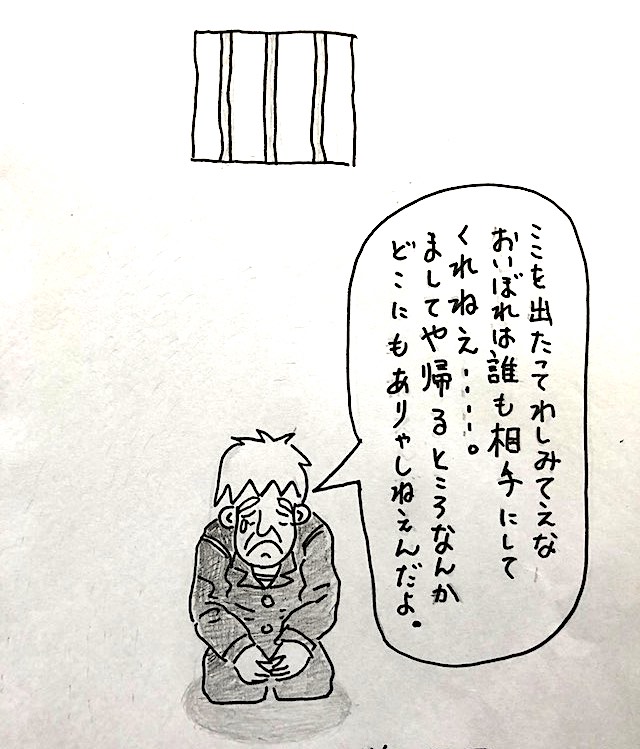 ここを出たってわしみてえな
おいぼれは誰も相手にして
くれねえ・・・・。
ましてや帰るところなんか
どこにもありゃしねえんだよ。